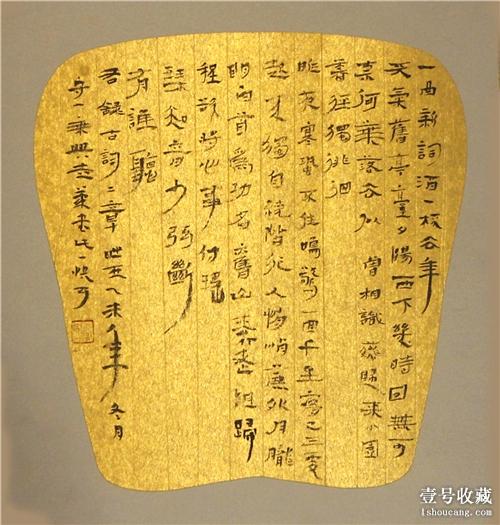 一曲新詞酒一杯去年
天氣舊亭臺夕陽西下幾時回無可
奈何華落去似曾相識燕歸來小園
香徑獨徘徊
昨夜寒蛩不住鳴驚回千里夢已三更
起來獨自繞階行人悄悄簾外月朧
明白首爲功名舊山松竹老阻歸
程欲將心事付瑤
琴知音少弦斷
有誰聽
右錄古詞二章乙未年冬月
守一乘興
壹号收藏
1shoucang.com